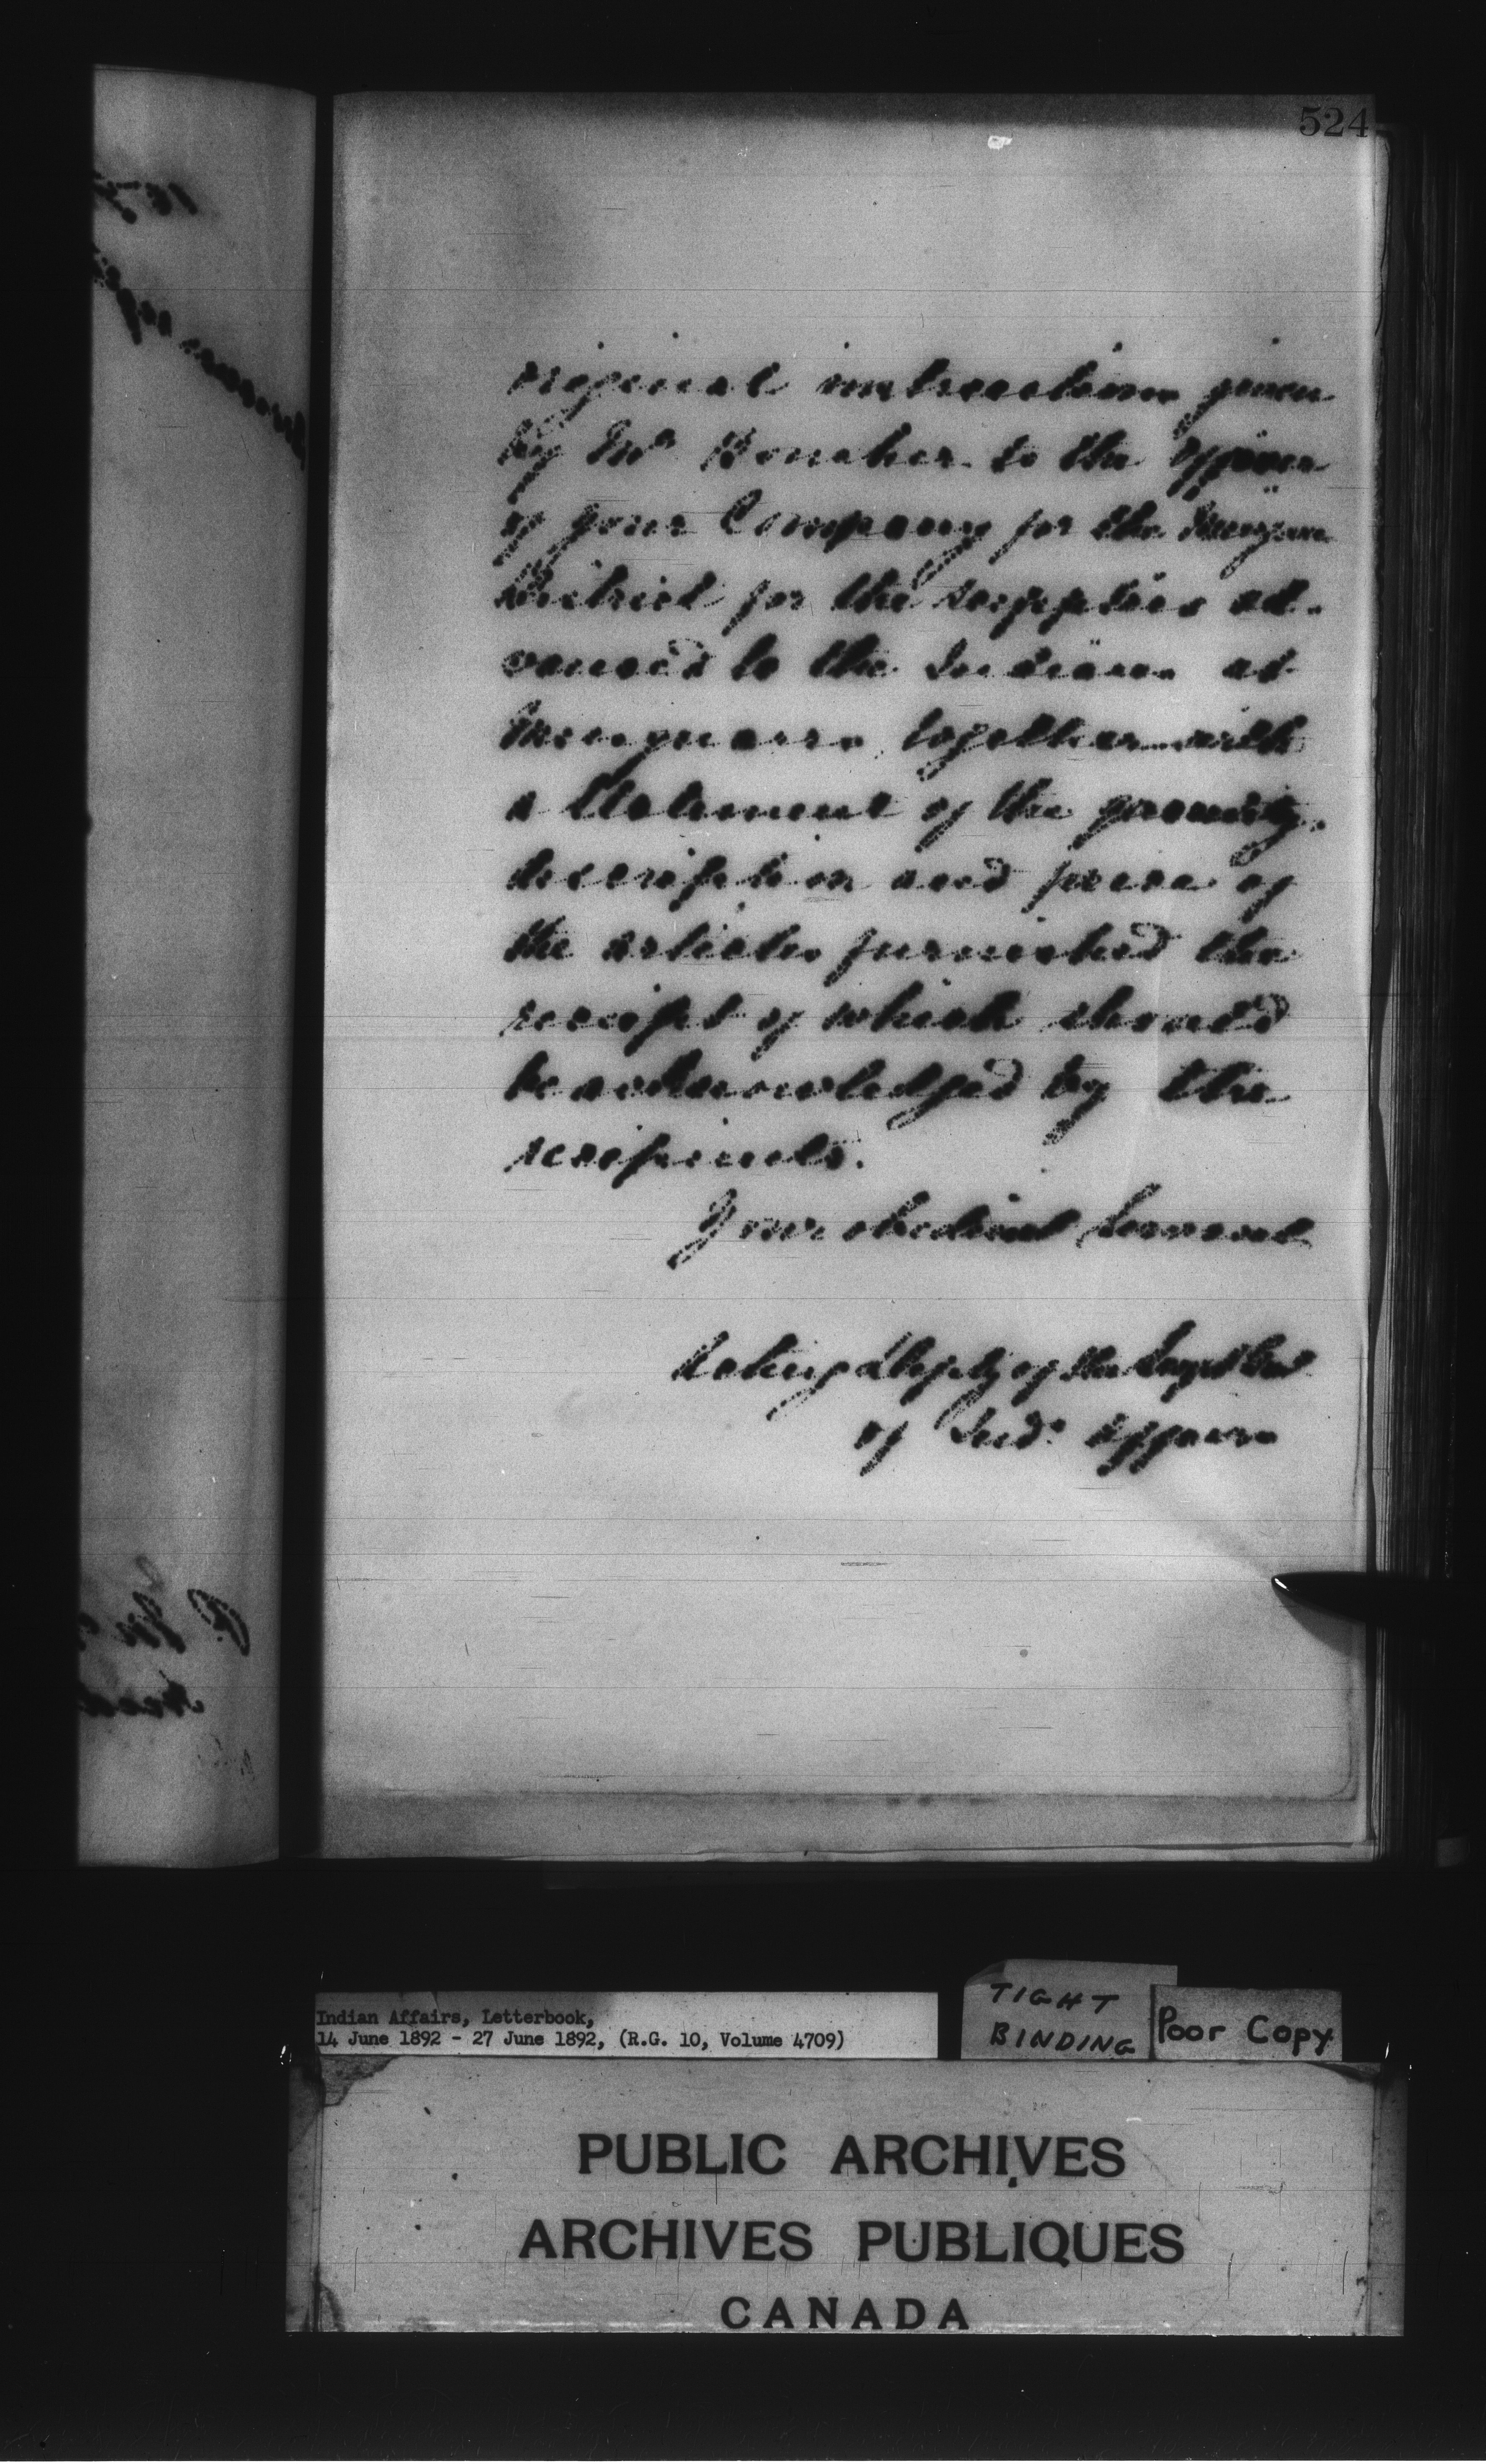 524
original instructions given
by Mr Boucher to the officer
of your Company for the
District for the supplies ad-
vanced to the Indians at
Mingan together with
a Statement of the quantity,
description and price of
the articles furnished the
receipt of which should
be acknowledged by the
recipients.
Your obedient servant
Acting Deputy of the Supt Genl
of Indn Affairs
Indian Affairs, Letterbook,
14 June 1892 - 27 June 1892, (R.G. 10, Volume 4709)
TIGHT
BINDING
Poor Copy
PUBLIC ARCHIVES
ARCHIVES PUBLIQUES
CANADA